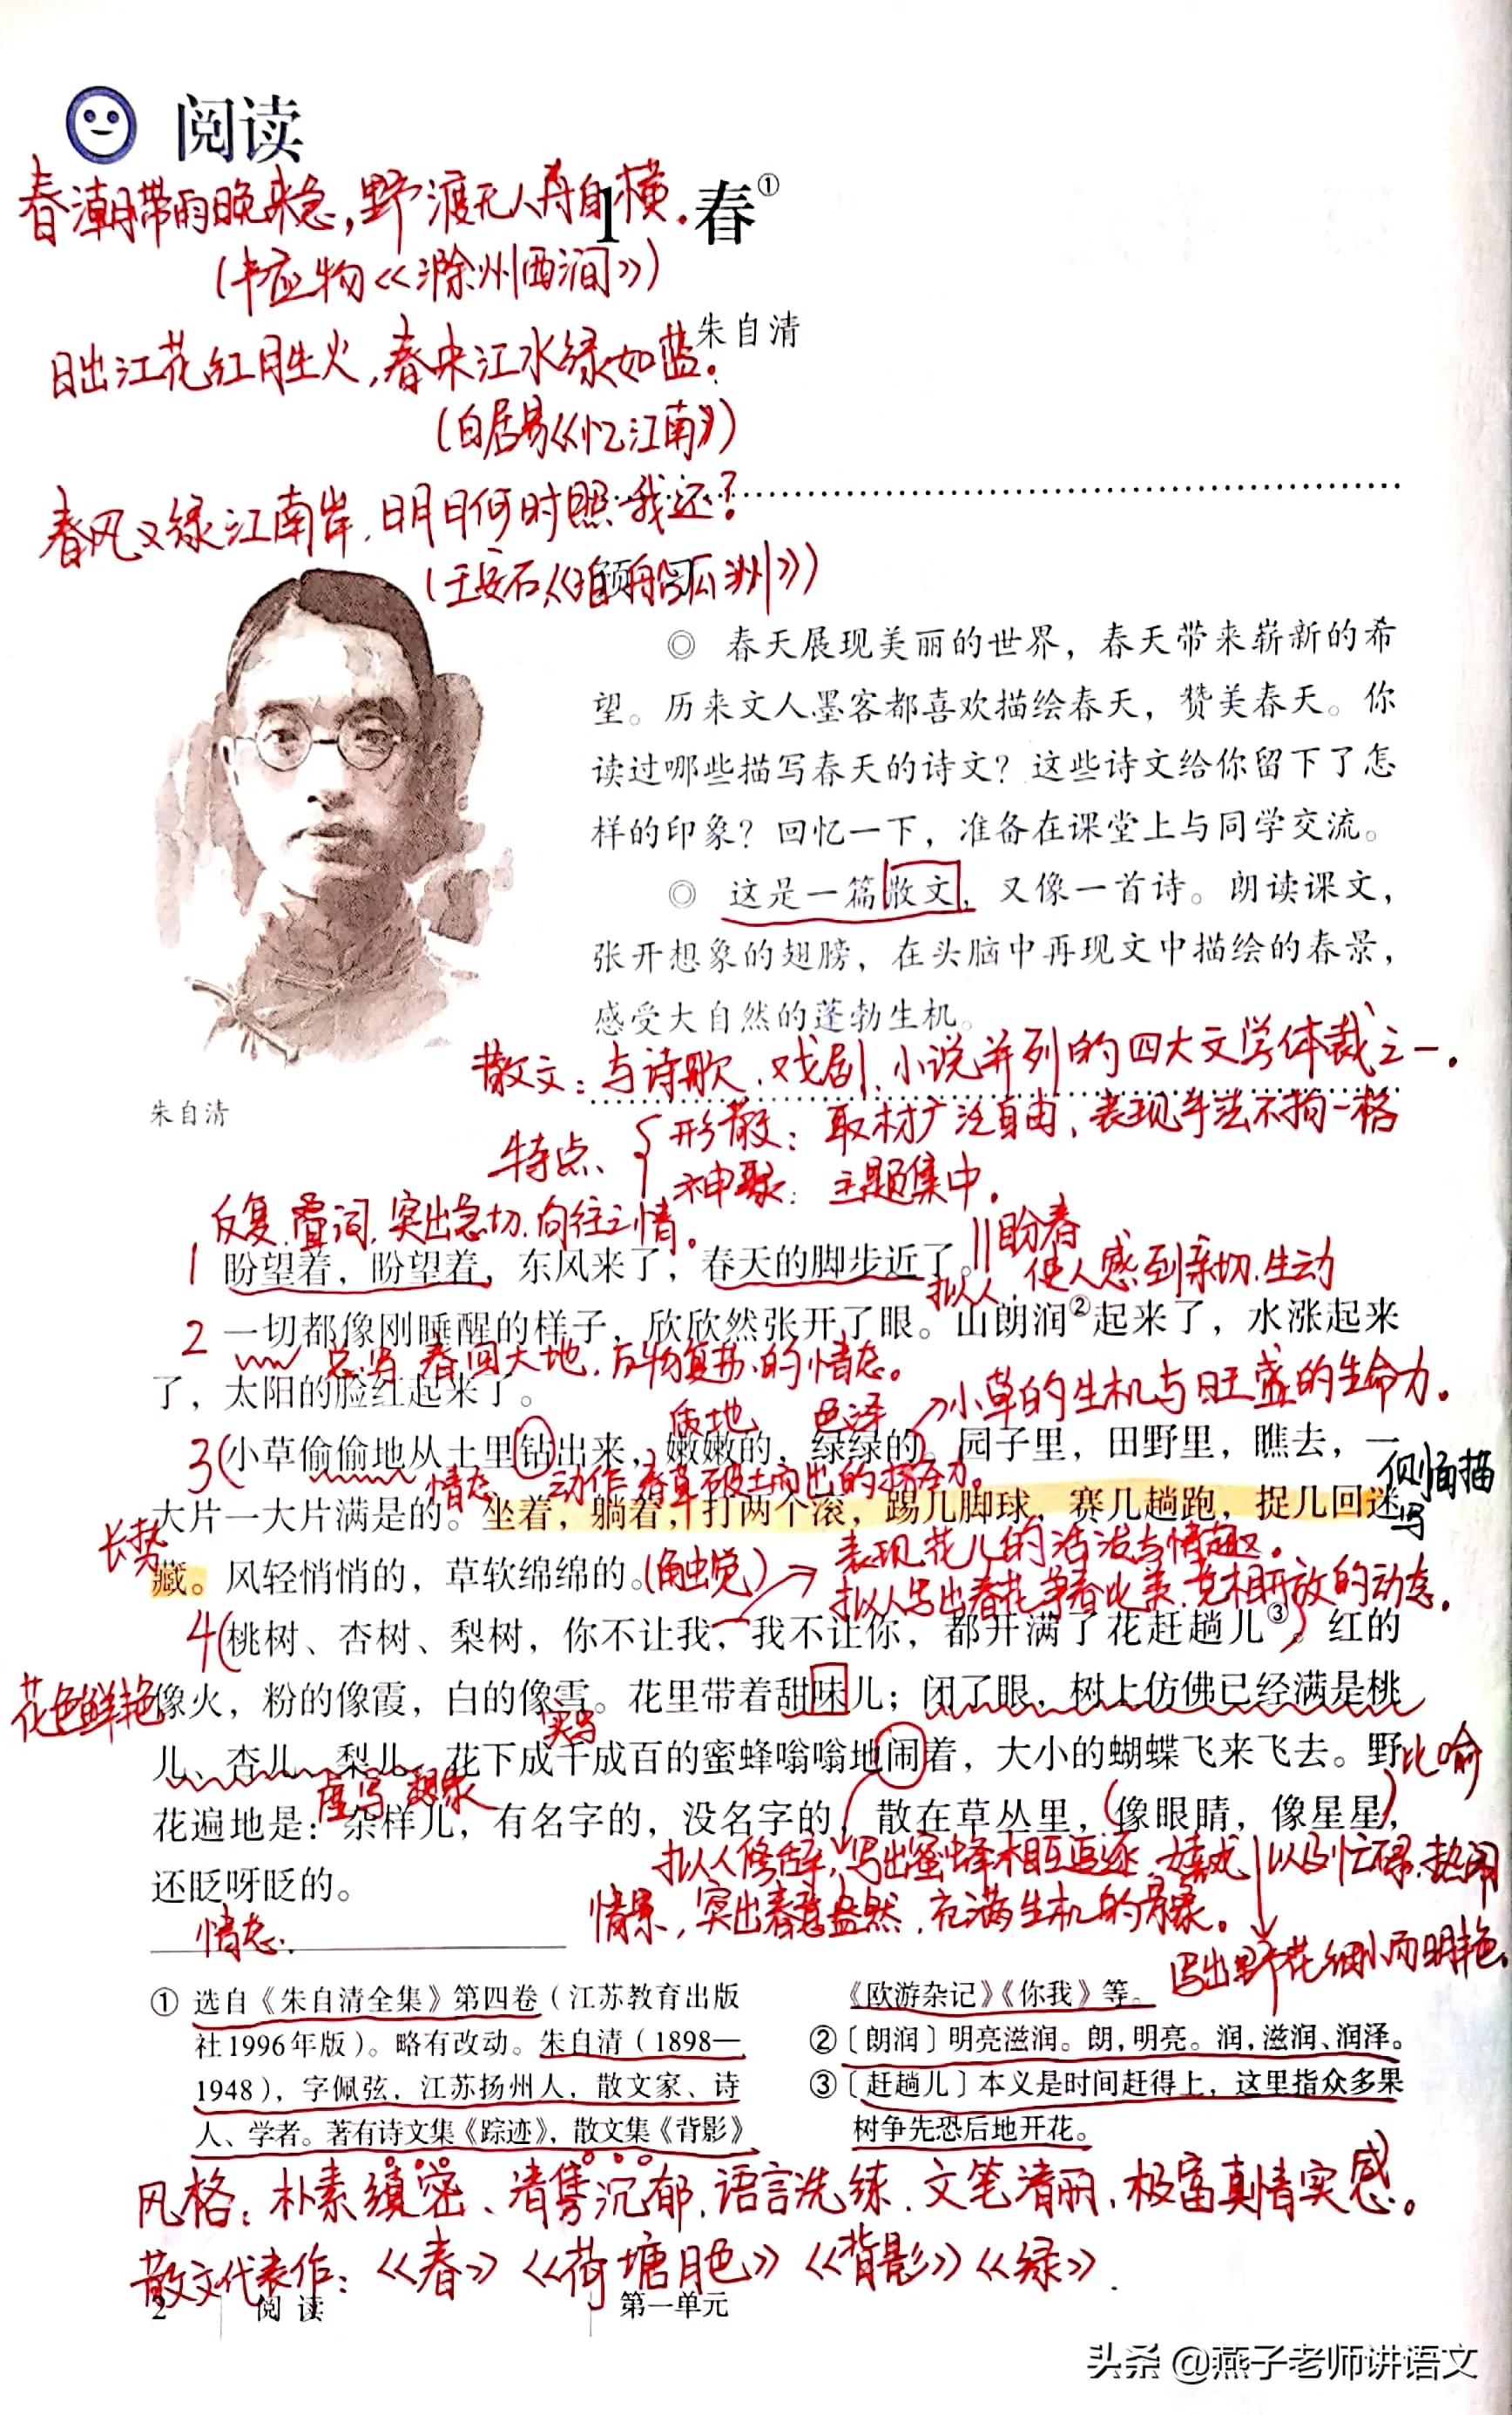 阅读
春潮带雨晚来急，野渡无人舟自横.
1 春①
(韦应物《滁州西涧》)
朱自清
日出江花红胜火,春来江水绿如蓝.
(白居易《忆江南》)
春风又绿江南岸,明月何时照我还?
(王安石《泊船瓜洲》)
预习
◎ 春天展现美丽的世界，春天带来崭新的希
望。历来文人墨客都喜欢描绘春天，赞美春天。你
读过哪些描写春天的诗文？这些诗文给你留下了怎
样的印象？回忆一下，准备在课堂上与同学交流。
◎ 这是一篇散文，又像一首诗。朗读课文，
张开想象的翅膀，在头脑中再现文中描绘的春景，
感受大自然的蓬勃生机。
散文：与诗歌、戏剧、小说并列的四大文学体裁之一.
朱自清
特点、
形散：取材广泛自由、表现手法不拘一格
神聚：主题集中.
反复.叠词.突出急切.向往之情。
1 盼望着，盼望着，东风来了，春天的脚步近了。‖盼春
拟人、使人感到亲切.生动
2 一切都像刚睡醒的样子，欣欣然张开了眼。山朗润②起来了，水涨起来
总写 春回大地.万物复苏的情态。
了，太阳的脸红起来了。
质地 色泽 小草的生机与旺盛的生命力.
3(小草偷偷地从土里钻出来，嫩嫩的，绿绿的。园子里，田野里，瞧去，一
情态、 动作 春草破土而出的挤劲.
侧面描写
大片一大片满是的。坐着，躺着，打两个滚，踢几脚球，赛几趟跑，捉几回迷
长势
表现花儿的活泼与情趣.
藏。风轻悄悄的，草软绵绵的。(触觉)
拟人写出春花争春比美.竞相开放的动态.
4(桃树、杏树、梨树，你不让我，我不让你，都开满了花赶趟儿③。红的
花色鲜艳
像火，粉的像霞，白的像雪。花里带着甜味儿；闭了眼，树上仿佛已经满是桃
实写
儿、杏儿、梨儿。花下成千成百的蜜蜂嗡嗡地闹着，大小的蝴蝶飞来飞去。野
比喻
虚写 想象
花遍地是：杂样儿，有名字的，没名字的，散在草丛里，(像眼睛，像星星)，
拟人修辞,写出蜜蜂相互追逐.嬉戏以及忙碌.热闹
还眨呀眨的。
情景,突出春意盎然,充满生机的景象.
情态.
写出野花细小而明艳.
① 选自《朱自清全集》第四卷（江苏教育出版
社1996年版）。略有改动。朱自清（1898—
1948），字佩弦，江苏扬州人，散文家、诗
人、学者。著有诗文集《踪迹》，散文集《背影》
《欧游杂记》《你我》等。
②〔朗润〕明亮滋润。朗，明亮。润，滋润、润泽。
③〔赶趟儿〕本义是时间赶得上，这里指众多果
树争先恐后地开花。
风格：朴素缜密、清隽沉郁、语言洗练、文笔清丽、极富真情实感。
散文代表作：《春》《荷塘月色》《背影》《绿》.
2 阅读 第一单元
头条 @燕子老师讲语文